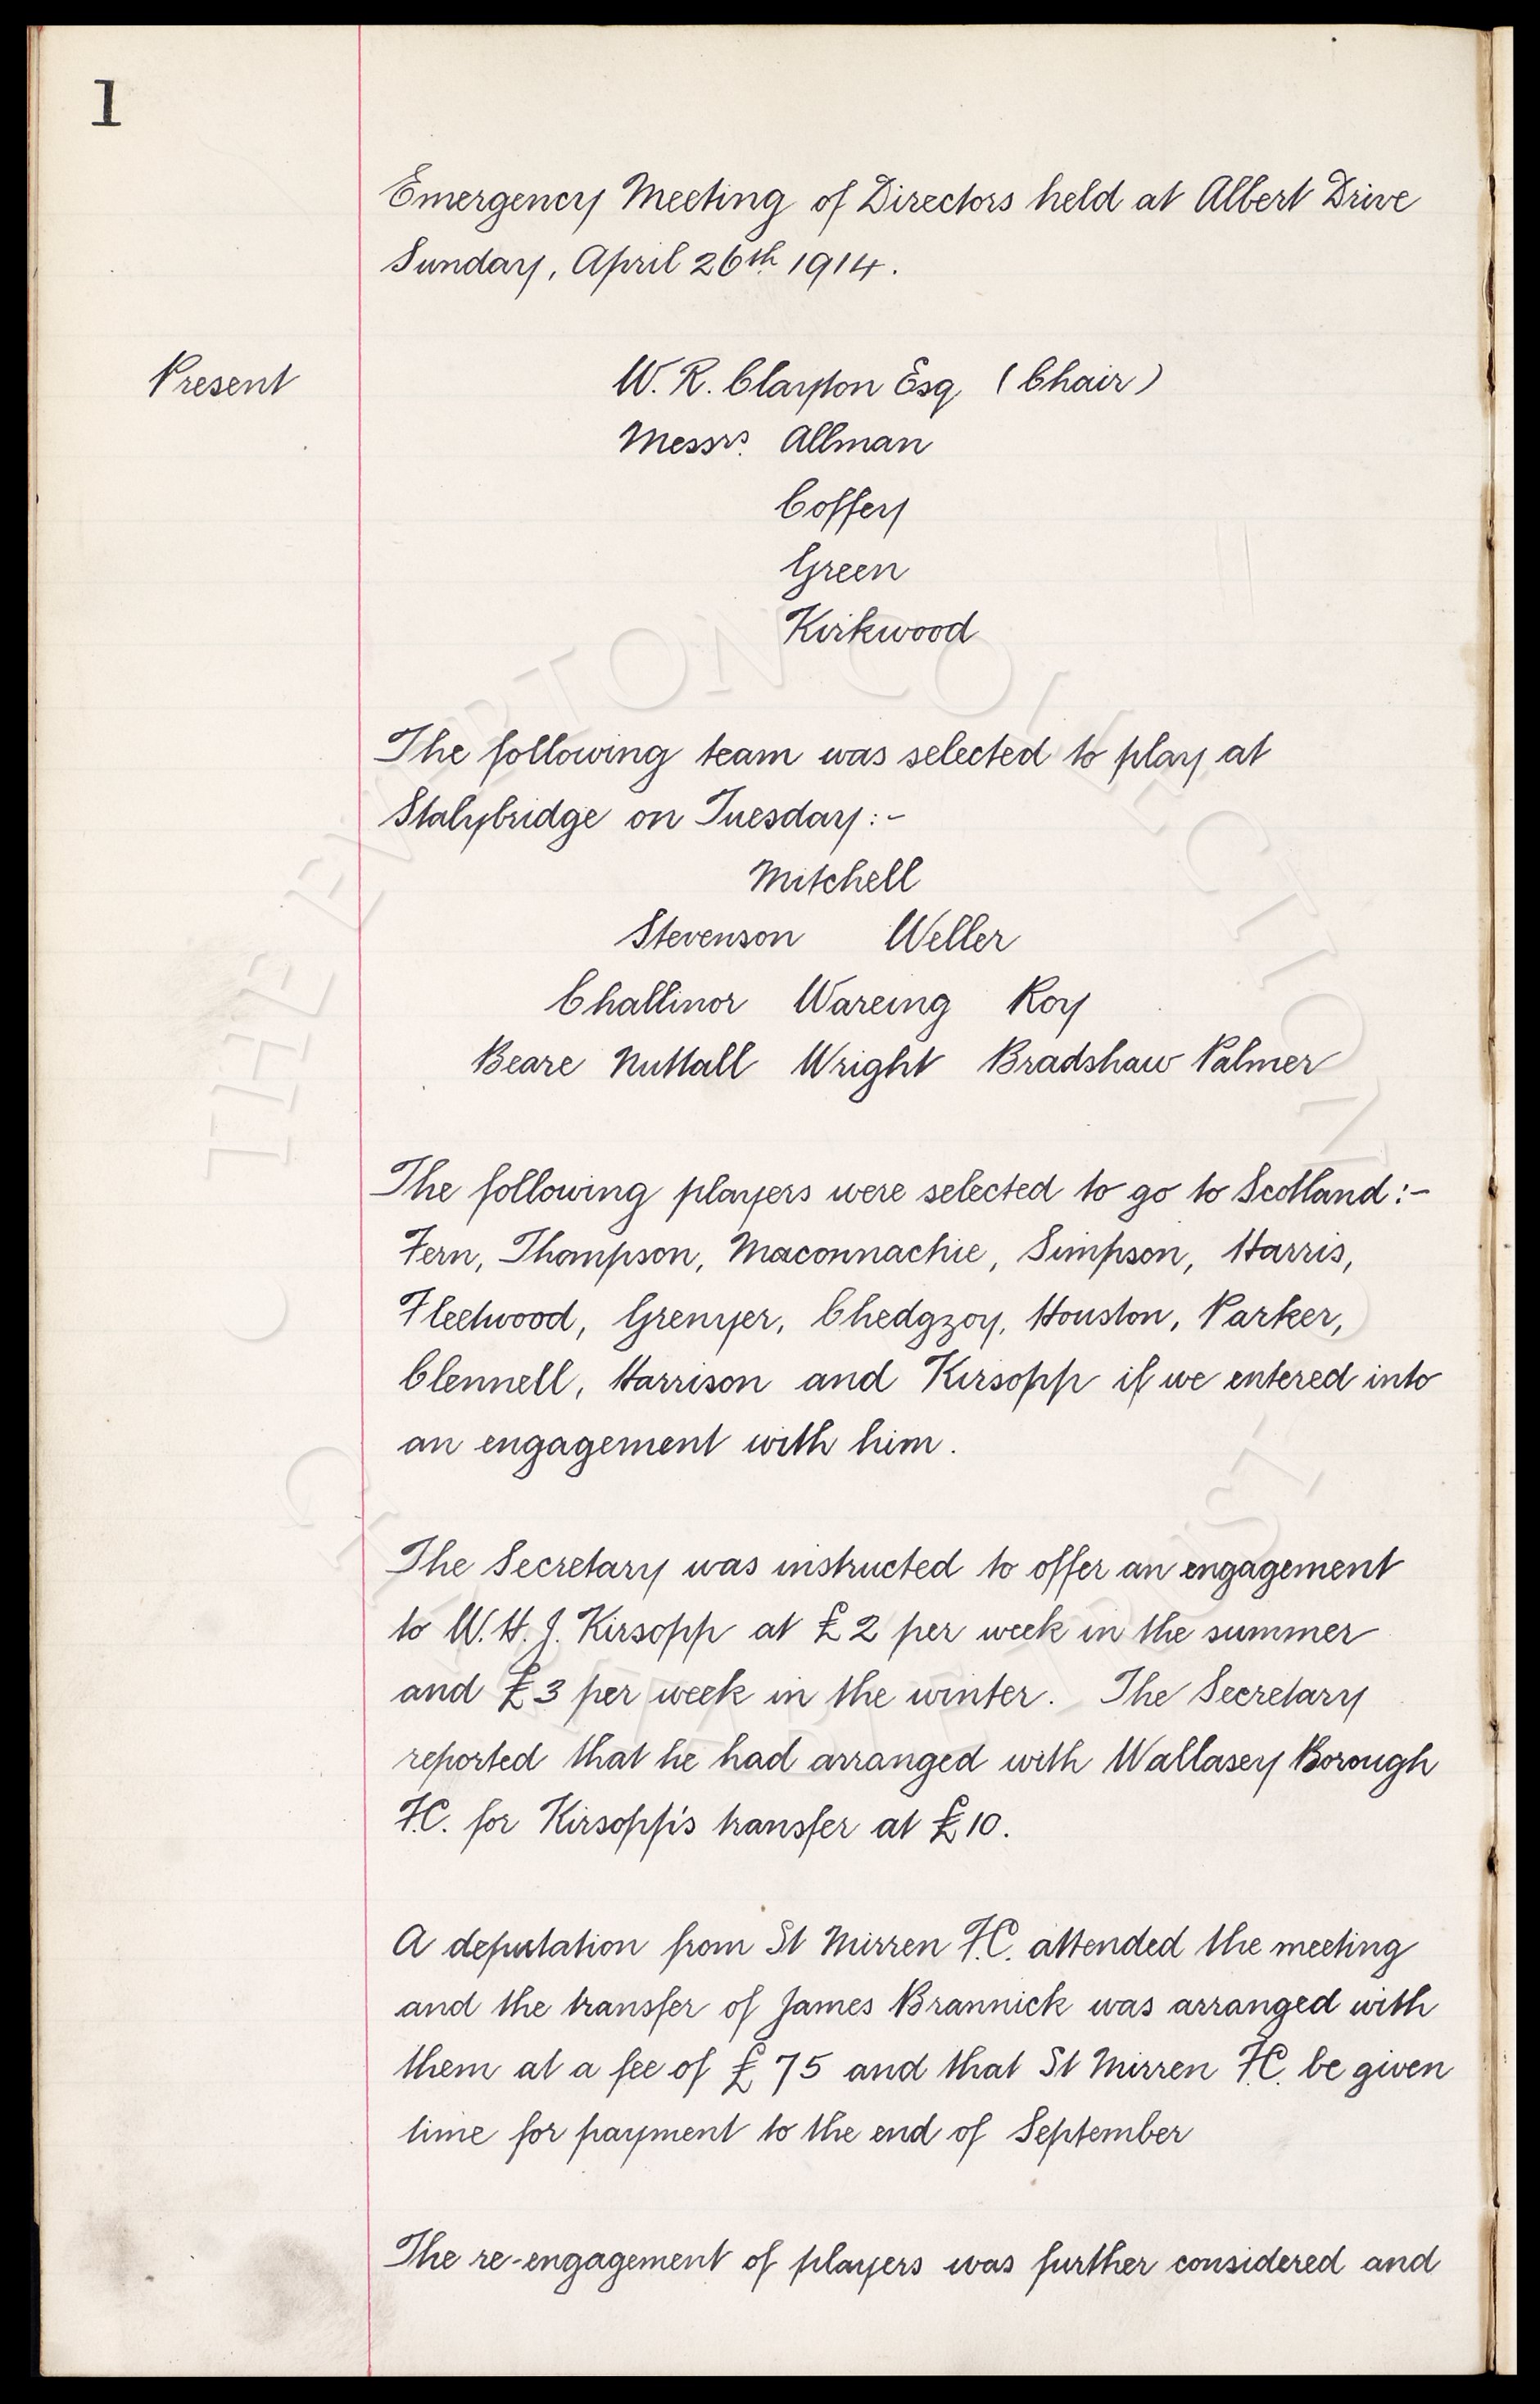 1
Emergency Meeting of Directors held at Albert Drive
Sunday, April 26th 1914.
Present
W. R. Clayton Esq (Chair)
Messrs. Allman
Coffey
Green
Kirkwood
The following team was selected to play at
Stalybridge on Tuesday:-
Mitchell
Stevenson Weller
Challinor Wareing Roy
Beare Nuttall Wright Bradshaw Palmer
The following players were selected to go to Scotland:-
Fern, Thompson, Maconnachie, Simpson, Harris,
Fleetwood, Grenyer, Chedgzoy, Houston, Parker,
Clennell, Harrison and Kirsopp if we entered into
an engagement with him.
The Secretary was instructed to offer an engagement
to W. H. J. Kirsopp at £2 per week in the summer
and £3 per week in the winter. The Secretary
reported that he had arranged with Wallasey Borough
F.C. for Kirsopp's transfer at £10.
A deputation from St Mirren F.C. attended the meeting
and the transfer of James Brannick was arranged with
them at a fee of £75 and that St Mirren F.C. be given
time for payment to the end of September
The re-engagement of players was further considered and
THE EVERTON COLLECTION
CHARITABLE TRUST